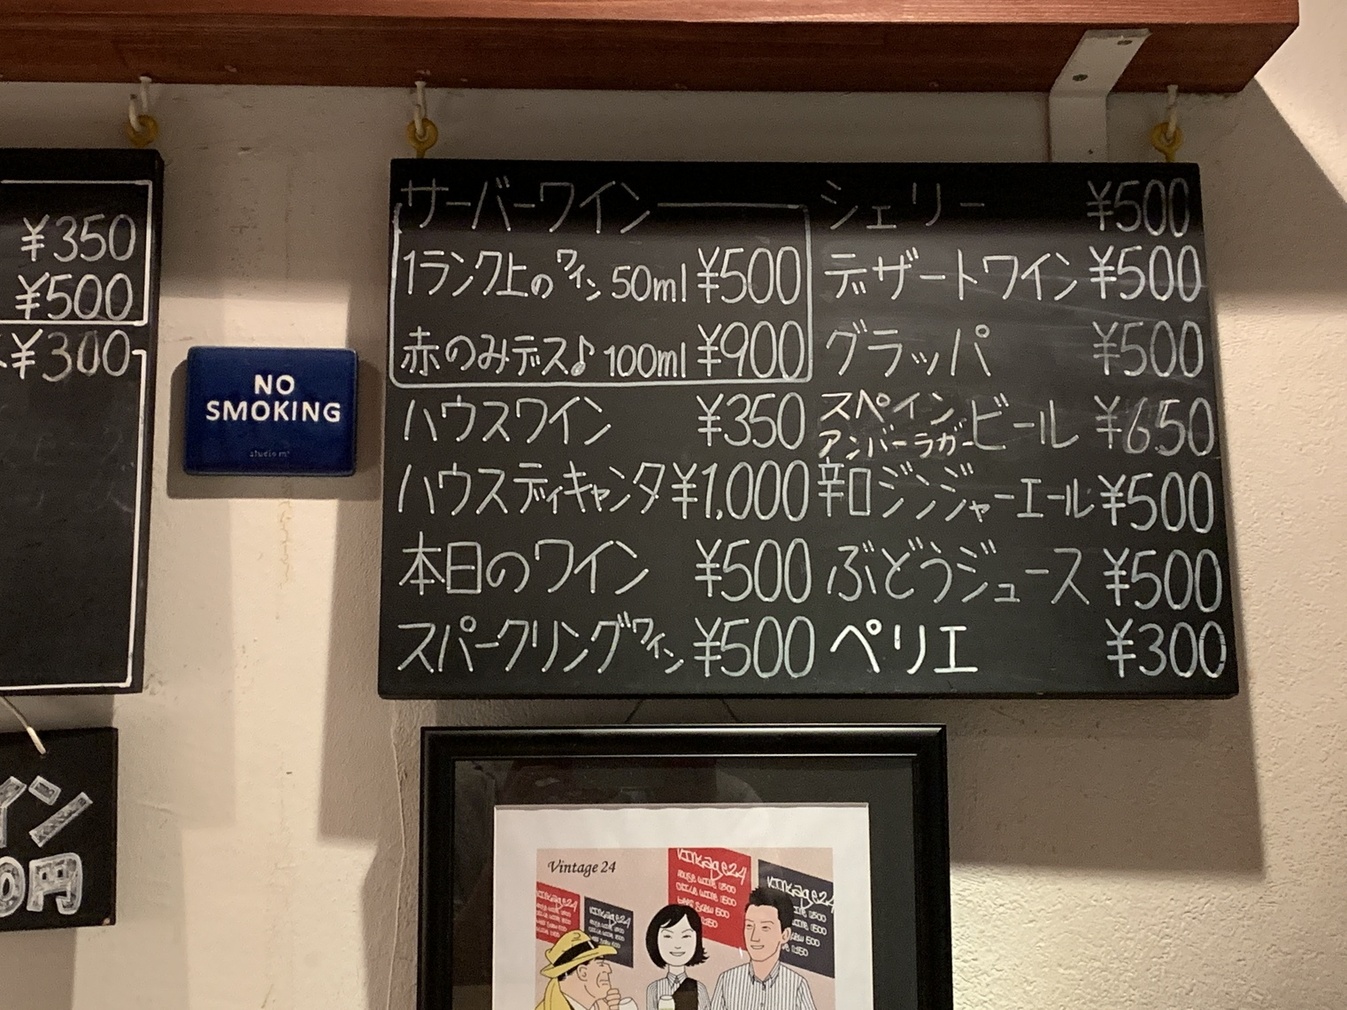 ¥350
¥500
¥300
イン
0円
NO
SMOKING
studio m'
サーバーワイン
1ランク上のワイン 50ml ¥500
赤のみデス♪ 100ml ¥900
ハウスワイン ¥350
ハウスディキャンタ ¥1,000
本日のワイン ¥500
スパークリングワイン ¥500
シェリー ¥500
デザートワイン ¥500
グラッパ ¥500
スペインアンバーラガービール ¥650
辛口ジンジャーエール ¥500
ぶどうジュース ¥500
ペリエ ¥300
Vintage 24
vintage24
HOUSE WINE 1500
vintage24
vintage24
vintage24